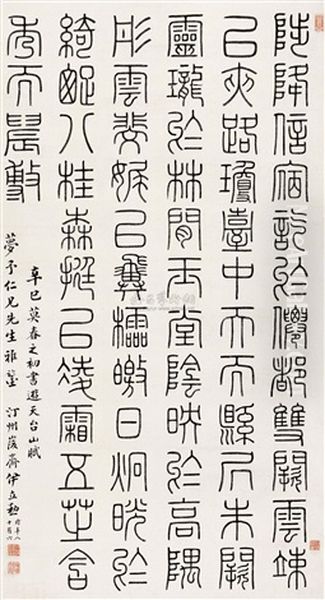 陟降信宿訖於僊都雙闕雲竦
㠯夾路瓊臺中天而縣凥朱閣
靈瓏於林間玉堂陰映於高隅
彤雲斐娓㠯翼櫺皦日炯晄於
綺疏八桂森挺㠯凌霜五芝含
秀而晨敷
辛巳莫春之初書遊天台山賦
夢予仁兄先生雅鑒 汀州峻齋伊立勳 時年八
十有六